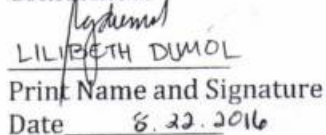 LILIBETH DUMOL
Print Name and Signature
Date 8.22.2016